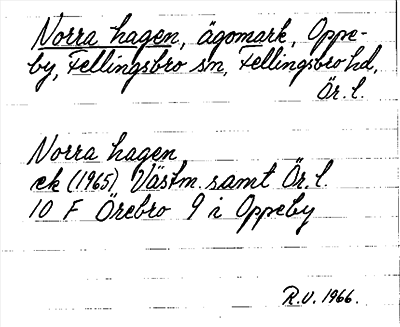 Norra hagen, ägomark, Oppe-
by, Fellingsbro sn, Fellingsbro hd,
Ör. l.
Norra hagen
ek (1965) Västm. samt Ör. l.
10 F Örebro 9 i Oppeby
R.V. 1966.